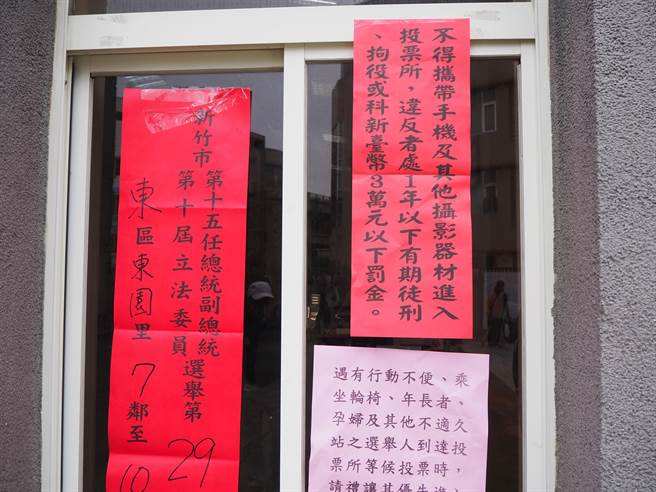 不得攜帶手機及其他攝影器材進入
投票所，違反者處1年以下有期徒刑
、拘役或科新臺幣3萬元以下罰金。
遇有行動不便、乘
坐輪椅、年長者、
孕婦及其他不適久
站之選舉人到達投
票所等候投票時，
請禮讓其優先進
新竹市
第十五任總統副總統
第十屆立法委員
選舉第29
東區東園里7鄰至10